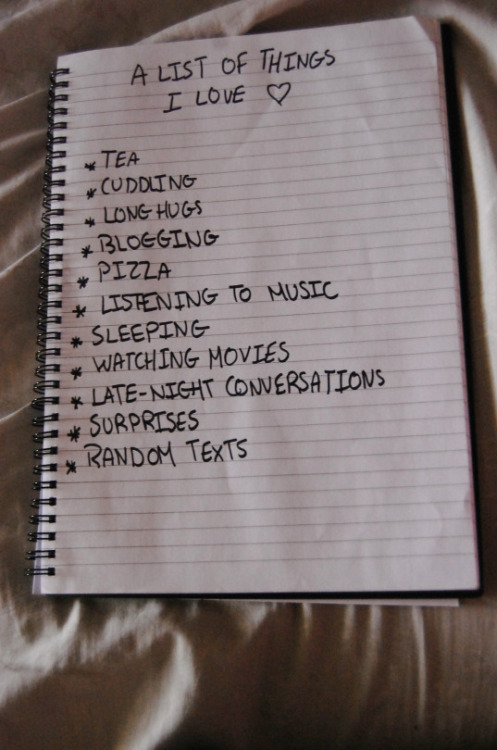 A LIST OF THINGS
I LOVE ♡
* TEA
* CUDDLING
* LONG HUGS
* BLOGGING
* PIZZA
* LISTENING TO MUSIC
* SLEEPING
* WATCHING MOVIES
* LATE-NIGHT CONVERSATIONS
* SURPRISES
* RANDOM TEXTS